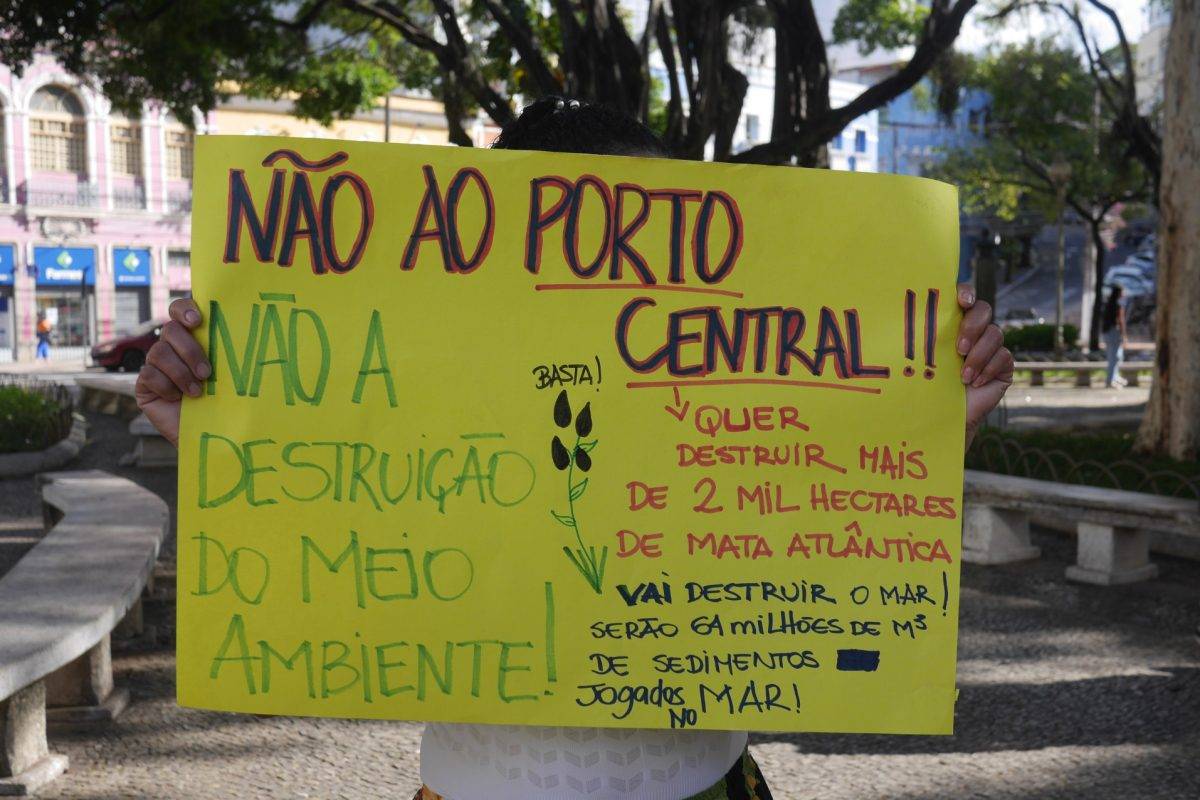 NÃO AO PORTO
CENTRAL!!
NÃO A
DESTRUIÇÃO
DO MEIO
AMBIENTE!
BASTA!
QUER
DESTRUIR MAIS
DE 2 MIL HECTARES
DE MATA ATLÂNTICA
VAI DESTRUIR O MAR!
SERÃO 64 MILHÕES DE M³
DE SEDIMENTOS
Jogados
NO MAR!